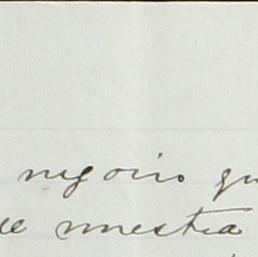 negocio qu
ue nuestra